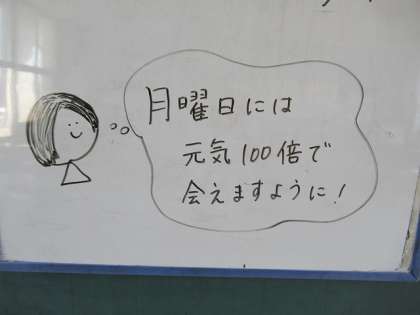 月曜日には
元気100倍で
会えますように!